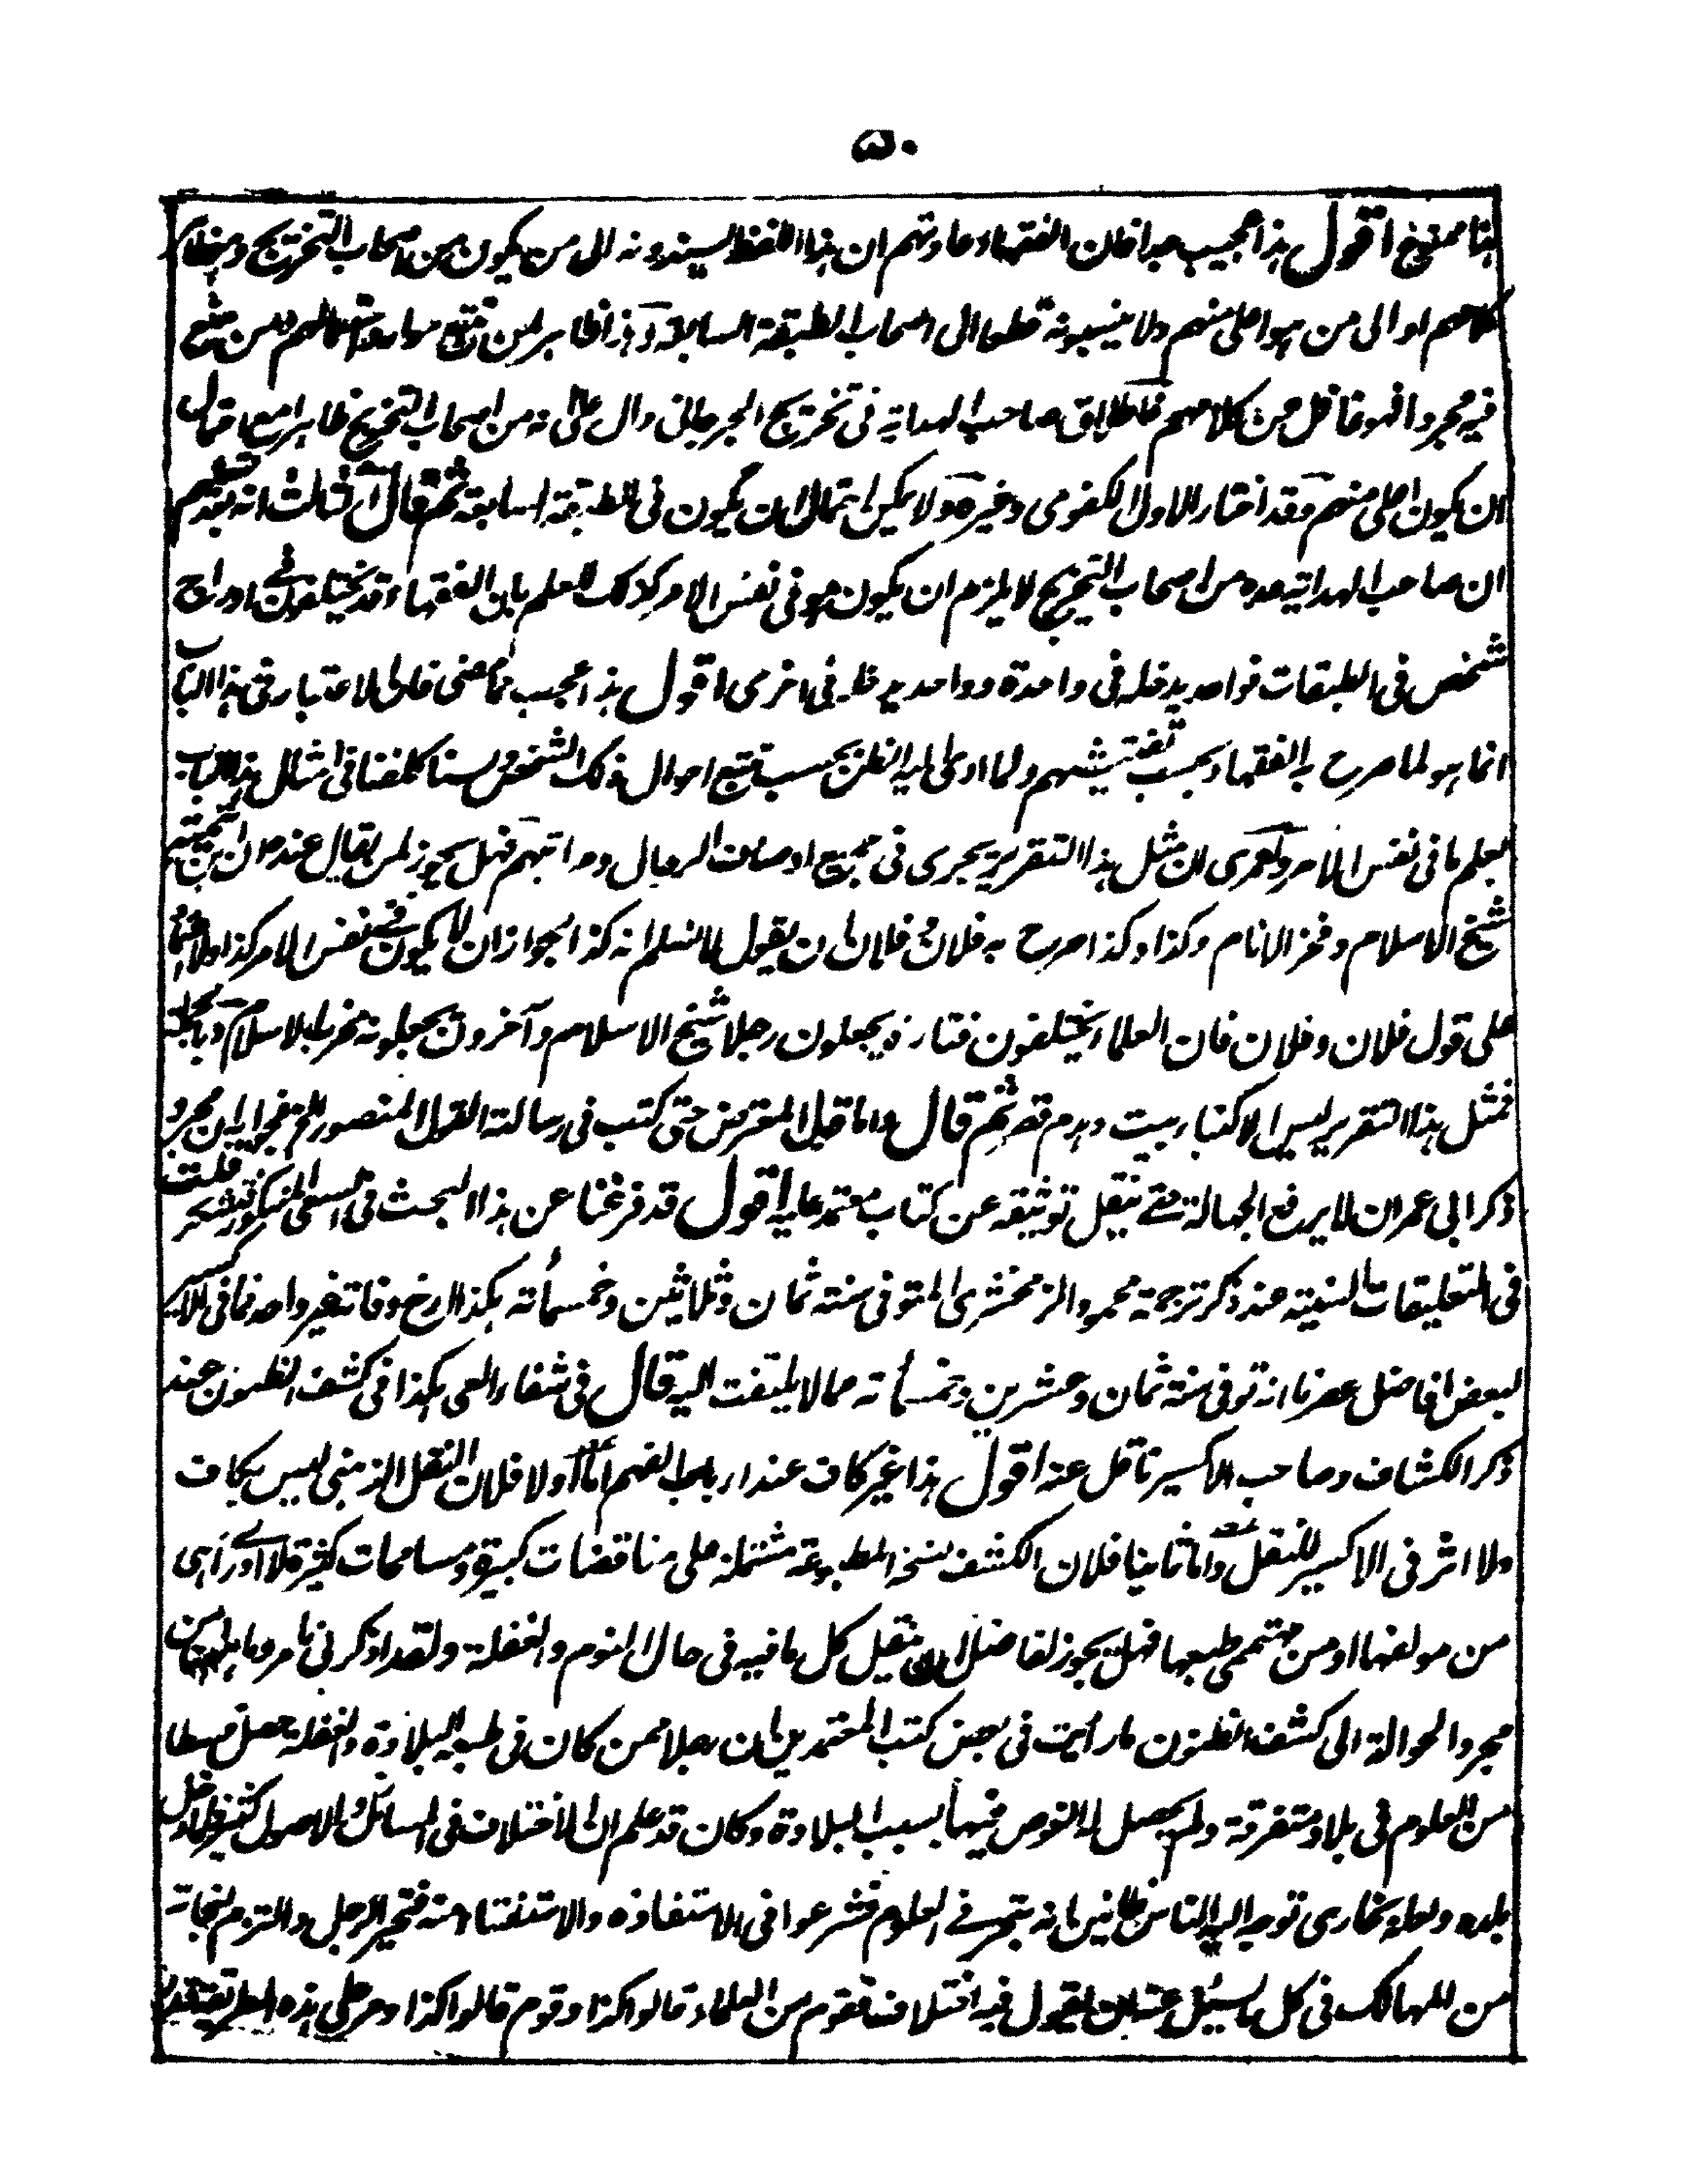 ٥٠
هنا ممنوع اقول هذا عجيب جدا فان الفقهاء عادتهم ان هذا اللفظ يسندونه الى من يكون من اصحاب التخريج
كلامهم او الى من هو اعلى منهم ولا ينسبونه قطعا الى اصحاب الطبقة السابعة وهذا ظاهر لمن تتبع موارد استعمالهم ومن منع
فيه مجردا فهو غافل عن كلامهم فاطلاق صاحب الهداية فى تخريج الجرجانى دال على انه من اصحاب التخريج ظاهرا مع احتمال
ان يكون اعلى منهم فقد اختار الاول الكفوى وغيره ولا يمكن احتمال ان يكون فى الطبقة السابعة ثم قال الثالث انه بعد تسليم
ان صاحب الهداية عده من اصحاب التخريج لا يلزم ان يكون هو فى نفس الامر كذلك لعلم بان الفقهاء قد يختلفون فى ادراج
شخص فى الطبقات فواحد يدخله فى واحدة وواحد يدخله فى اخرى اقول هذا اعجب مما مضى فان الاعتبار فى هذا الباب
انما هو لما صرح به الفقهاء بحسب تفتيشهم ولما ادى اليه الظن بحسب تتبع احوال ذلك الشخص ولسنا كلفنا فى امثال هذا الباب
بعلم ما فى نفس الامر ولعمرى ان مثل هذا التقرير يجرى فى جميع اوصاف الرجال ومراتبهم فهل يجوز لمن يقال عنده ان ابن تيمية
شيخ الاسلام وفخر الانام وكذا وكذا صرح به فلان وفلان ان يقول لا نسلم انه كذا لجواز ان لا يكون فى نفس الامر كذا ولا اعتماد
على قول فلان وفلان فان العلماء يختلفون فتارة يجعلون رجلا شيخ الاسلام وآخرون يجعلونه مخرب الاسلام وبالجملة
فمثل هذا التقرير ليس الا كبناء بيت وهدم قصر ثم قال واما قبل المعترض حتى كتب فى رسالته القول المنصور فجوابه ان مجرد
ذكر ابى عمران لا يرفع الجهالة حتى ينقل توثيقه عن كتاب معتمد عليه اقول قد فرغنا عن هذا البحث فى السعى المشكور فتشكر قلت
فى التعليقات السنية عند ذكر ترجمة محمود الزمخشرى المتوفى سنة ثمان وثلاثين وخمسمأته هكذا ارخ وفاته غير واحد فما فى الاكسير
لبعض افاضل عصرنا انه توفى سنة ثمان وعشرين وخمسمأته مما لا يلتفت اليه قال فى شفاء العى هكذا فى كشف الظنون عند
ذكر الكشاف وصاحب الاكسير ناقل عنه اقول هذا غير كاف عند ارباب الفهم اما اولا فلان النقل الذهنى ليس بكاف
ولا اثر فى الاكسير للنقل واما ثانيا فلان الكشف نسخه المطبوعة مشتملة على مناقضات كبيرة ومسامحات كثيرة فلا ادرى اهى
من مولفها او من مهتمى طبعها فهل يجوز لفاضل ان ينقل كل ما فيه فى حال النوم والغفلة ولقد اذكرنى ما مر وما ياتى من
مجرد الحوالة الى كشف الظنون ما رأيت فى بعض كتب المعتمدين ان رجلا ممن كان فى طبعه البلادة والغفلة حصل قسطا
من العلوم فى بلاد متفرقة ولم يحصل له الغوص فيها بسبب البلادة وكان قد علم ان الاختلاف فى المسائل والاصول كثير فلما دخل
بلده ولعله بخارى توجه اليه الناس ظانين بانه تبحر فى العلوم فشرعوا فى الاستفاذه والاستفتاء منه فتحير الرجل والتزم لنجاته
من المهالك فى كل ما يسئل عنه بان يقول فيه اختلاف فقوم من العلماء قالوا كذا وقوم قالوا كذا ومر على هذه الطريقة